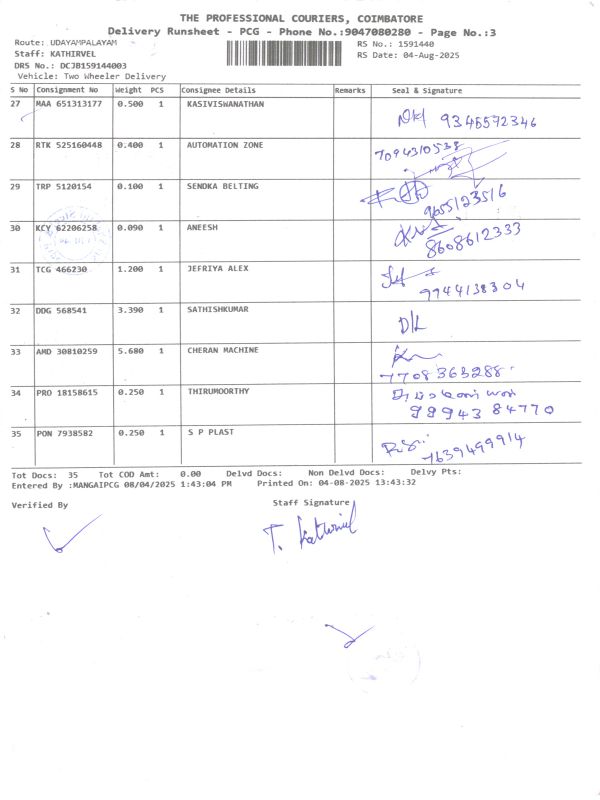 THE PROFESSIONAL COURIERS, COIMBATORE
Delivery Runsheet - PCG - Phone No.:9047080280 - Page No.:3
Route: UDAYAMPALAYAM
RS No.: 1591440
Staff: KATHIRVEL
RS Date: 04-Aug-2025
DRS No.: DCJB159144003
Vehicle: Two Wheeler Delivery
S No Consignment No Weight PCS Consignee Details Remarks Seal & Signature
27 MAA 651313177 0.500 1 KASIVISWANATHAN
9345572346
28 RTK 525160448 0.400 1 AUTOMATION ZONE
7094310538
29 TRP 5120154 0.100 1 SENDKA BELTING
9655123516
30 KCY 62206258 0.090 1 ANEESH
8608612333
31 TCG 466230 1.200 1 JEFRIYA ALEX
9944138304
32 DDG 568541 3.390 1 SATHISHKUMAR
D/L
33 AMD 30810259 5.680 1 CHERAN MACHINE
7708363288
34 PRO 18158615 0.250 1 THIRUMOORTHY
99943 84770
35 PON 7938582 0.250 1 S P PLAST
7639499914
Tot Docs: 35 Tot COD Amt: 0.00 Delvd Docs: Non Delvd Docs: Delvy Pts:
Entered By :MANGAIPCG 08/04/2025 1:43:04 PM Printed On: 04-08-2025 13:43:32
Verified By Staff Signature
T. Kathirvel